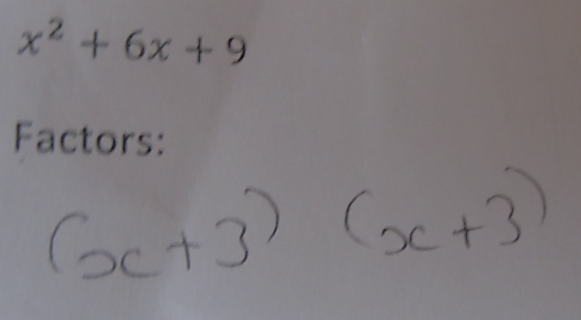 x² + 6x + 9
Factors:
(x+3) (x+3)